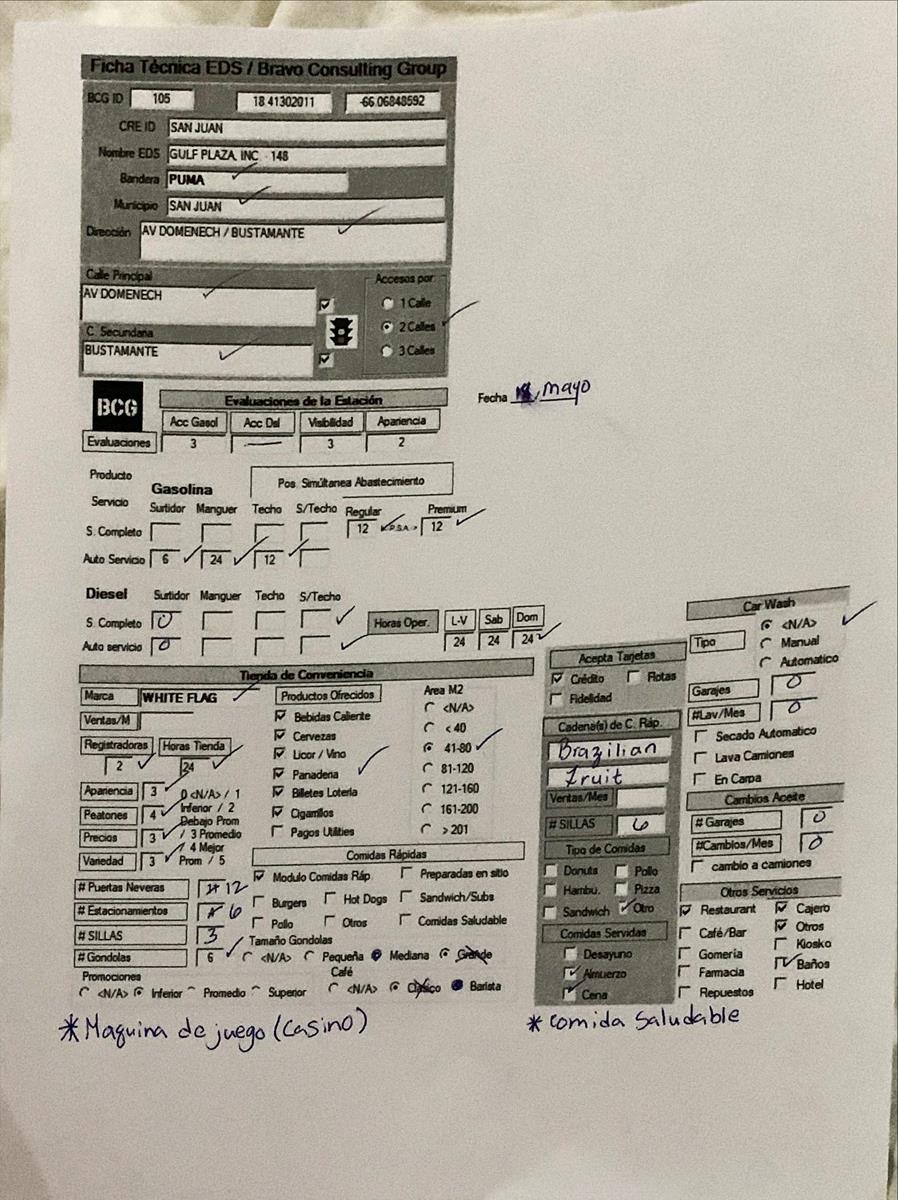 Ficha Técnica EDS / Bravo Consulting Group
BCG ID 105 18.41302011 -66.06848592
CRE ID SAN JUAN
Nombre EDS GULF PLAZA, INC - 148
Bandera PUMA
Municipio SAN JUAN
Dirección AV DOMENECH / BUSTAMANTE
Calle Principal
AV DOMENECH
C. Secundaria
BUSTAMANTE
Accesos por
1 Calle
2 Calles
3 Calles
BCG
Evaluaciones de la Estación
Fecha mayo
Acc Gasol Acc Dsl Visibilidad Apariencia
Evaluaciones 3 — 3 2
Producto
Servicio
Gasolina
Pos. Simúltanea Abastecimiento
Surtidor Manguer Techo S/Techo Regular Premium
S. Completo 12 12
Auto Servicio 6 24 12
Diesel Surtidor Manguer Techo S/Techo
S. Completo 0
Auto servicio 0
Horas Oper. L-V Sab Dom
24 24 24
Tienda de Conveniencia
Marca WHITE FLAG
Ventas/M
Registradoras Horas Tienda
2 24
Apariencia 3
Peatones 4
Precios 3
Variedad 3
0 <N/A> / 1
Inferior / 2
Debajo Prom
/ 3 Promedio
/ 4 Mejor
Prom / 5
# Puertas Neveras 12
# Estacionamientos 6
# SILLAS 3
# Gondolas 6
Productos Ofrecidos
Bebidas Caliente
Cervezas
Licor / Vino
Panaderia
Billetes Loteria
Cigarrillos
Pagos Utilities
Area M2
<N/A>
< 40
41-80
81-120
121-160
161-200
> 201
Comidas Rápidas
Modulo Comidas Ráp. Preparadas en sitio
Burgers Hot Dogs Sandwich/Subs
Pollo Otros Comidas Saludable
Tamaño Gondolas
<N/A> Pequeña Mediana Grande
Promociones
<N/A> Inferior Promedio Superior
Café
<N/A> Clásico Barista
Acepta Tarjetas
Crédito Flotas
Fidelidad
Cadena(s) de C. Ráp.
Brazilian
Fruit
Ventas/Mes
# SILLAS 6
Tipo de Comidas
Donuts Pollo
Hambu. Pizza
Sandwich Otro
Comidas Servidas
Desayuno
Almuerzo
Cena
Car Wash
Tipo
<N/A>
Manual
Automatico
Garajes 0
#Lav/Mes 0
Secado Automatico
Lava Camiones
En Carpa
Cambios Aceite
# Garajes 0
#Cambios/Mes 0
cambio a camiones
Otros Servicios
Restaurant Cajero
Café/Bar Otros
Gomería Kiosko
Farmacia Baños
Repuestos Hotel
* Maquina de juego (casino)
* comida saludable